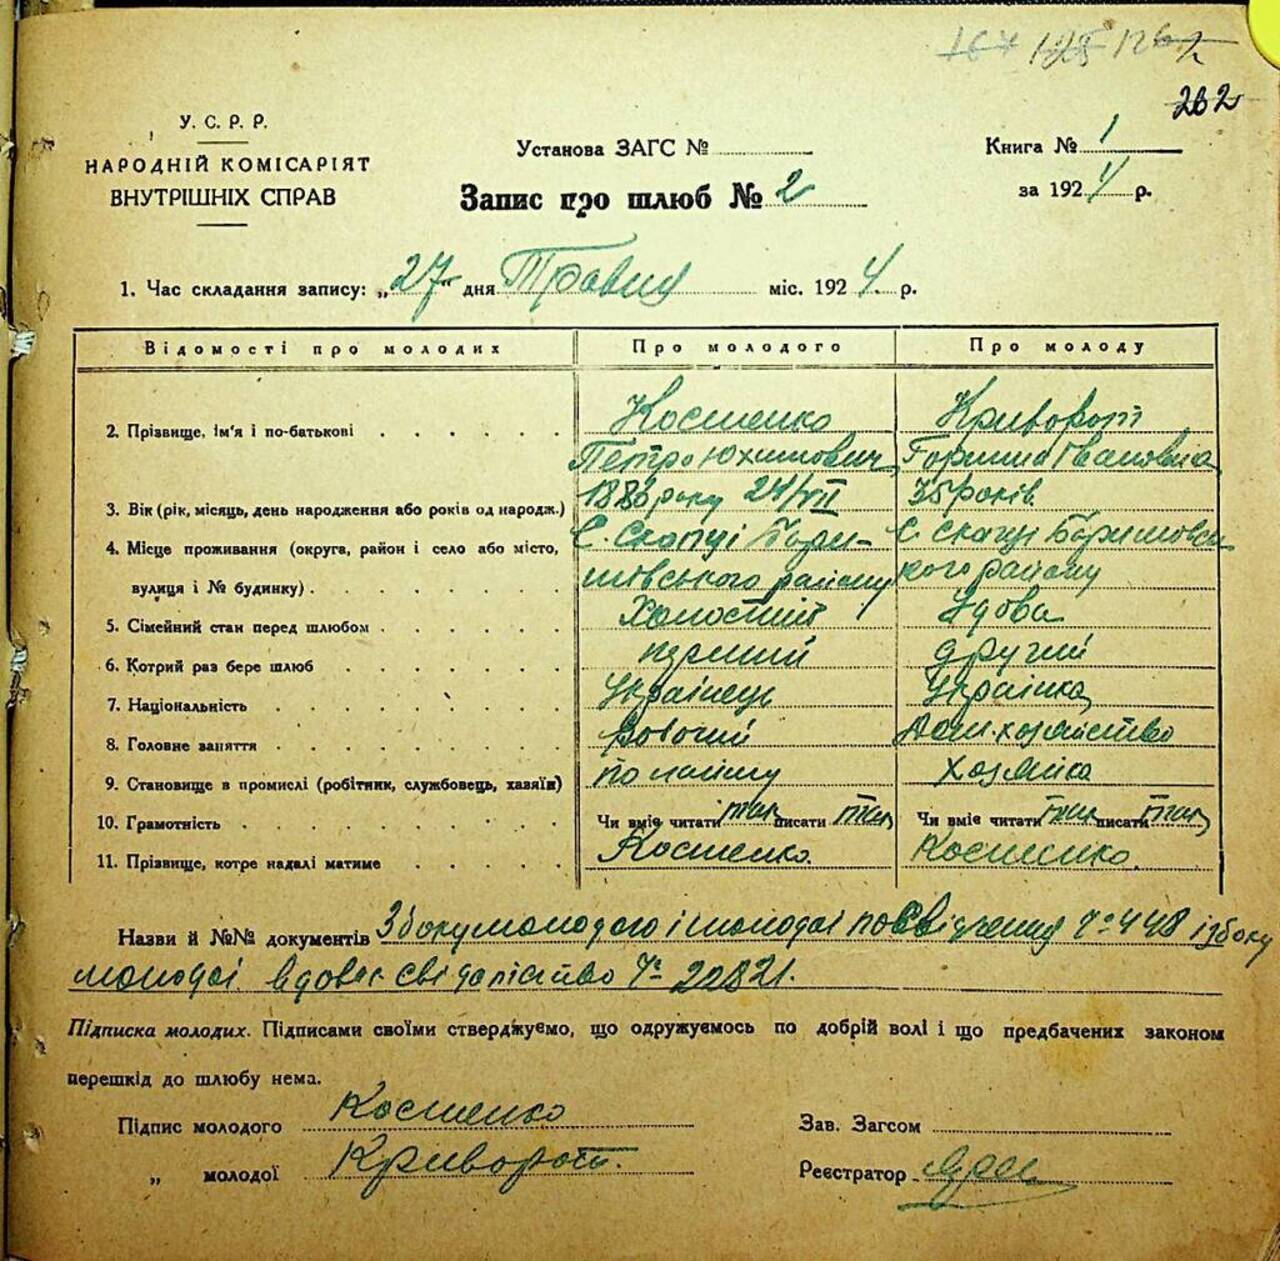 167 125 126
202
У. С. Р. Р.
НАРОДНІЙ КОМІСАРІЯТ
ВНУТРІШНІХ СПРАВ
Установа ЗАГС №
Запис про шлюб № 2
Книга № 1
за 1924 р.
1. Час складання запису: „27" дня Травня міс. 1924. р.
Відомості про молодих Про молодого Про молоду
2. Прізвище, ім'я і по-батькові Костенко Криворот
Петро Юхимович Горпина Івановна
3. Вік (рік, місяць, день народження або років од народж.) 1886 року 24/VII 35 років
4. Місце проживання (округа, район і село або місто, С. Скопці Бари- С. Скопці Баришовсь
вулиця і № будинку) шівського району кого району
5. Сімейний стан перед шлюбом Холостий Удова
6. Котрий раз бере шлюб перший другий
7. Національність Українець Українка
8. Головне заняття Робочий Дом. хозяйство
9. Становище в промислі (робітник, службовець, хазяїн) по найму хозяйка
10. Грамотність Чи вміє читати так писати так Чи вміє читати так писати так
11. Прізвище, котре надалі матиме Костенко. Костенко.
Назви й №№ документів З боку молодого і молодої посвідчення № 448 і з боку
молодої. вдовье свідоцтво № 20821.
Підписка молодих. Підписами своїми стверджуємо, що одружуємось по добрій волі і що предбачених законом
перешкід до шлюбу нема.
Підпис молодого Костенко
„ молодої Криворот.
Зав. Загсом
Реєстратор